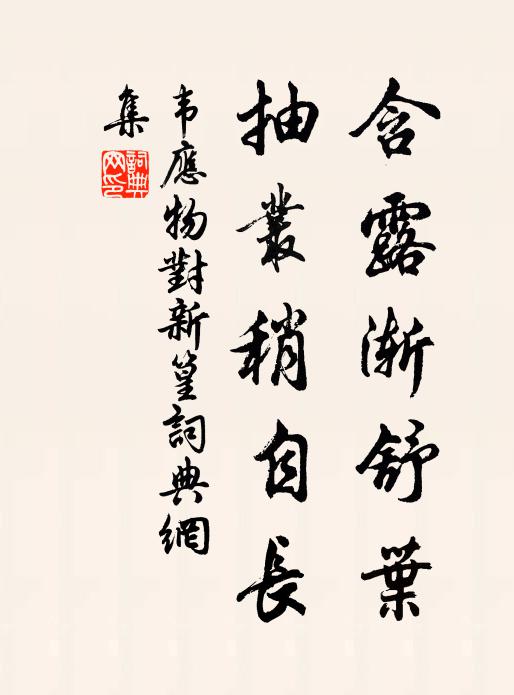 含露漸舒葉
抽叢稍自長
韦應物對新篁詞典網
集
詞典网印